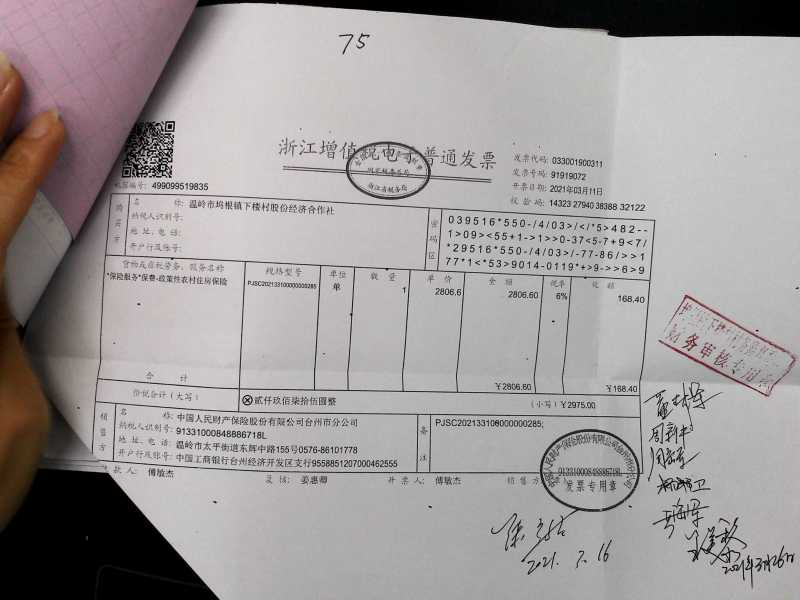 75
浙江增值税电子普通发票
全国统一发票监制章
国家税务总局
浙江省税务局
发票代码: 033001900311
发票号码: 91919072
开票日期: 2021年03月11日
校验码: 14323 27940 38388 32122
机器编号: 499099519835
购买方
名称: 温岭市坞根镇下楼村股份经济合作社
纳税人识别号:
地址、电话:
开户行及账号:
密码区
039516*550-/4/03>/</*5>482--
1>09><55+1->1>>0-37<5-7+9<7/
*29516*550-/4/03>/-77-86/>>1
77*1<*53>9014-0119*+>9->>6>9
货物或应税劳务、服务名称 规格型号 单位 数量 单价 金额 税率 税额
*保险服务*保费-政策性农村住房保险 PJSC20213310000000285 单 1 2806.6 2806.60 6% 168.40
合计 ¥2806.60 ¥168.40
价税合计(大写) ⊗贰仟玖佰柒拾伍圆整 (小写)¥2975.00
销售方
名称: 中国人民财产保险股份有限公司台州市分公司
纳税人识别号: 91331000848886718L
地址、电话: 温岭市太平街道东辉中路155号0576-86101778
开户行及账号: 中国工商银行台州经济开发区支行9558851207000462555
备注
PJSC20213310000000285;
收款人: 傅敏杰 复核: 姜惠卿 开票人: 傅敏杰 销售方
中国人民财产保险股份有限公司台州市分公司
91331000848886718L
发票专用章
财务审核专用章
2021.7.16
2021年3月26日